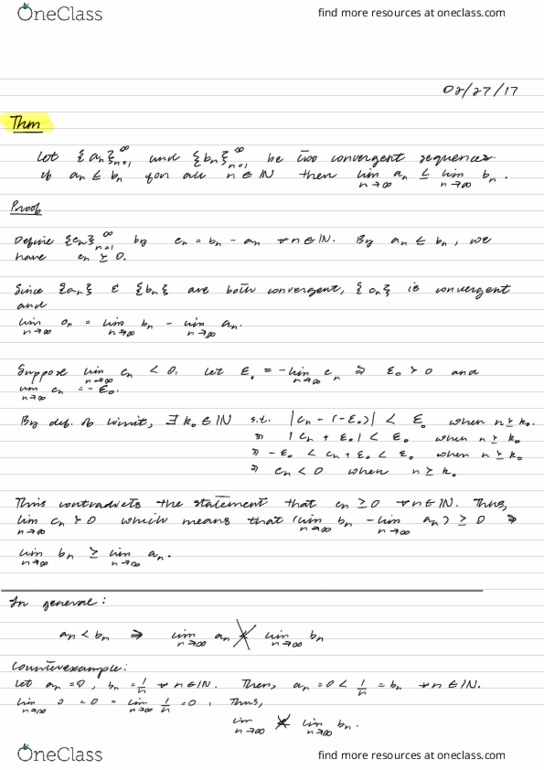 OneClass
find more resources at oneclass.com
02/27/17
Thm
Let {aₙ}ₙ₌₁^∞ and {bₙ}ₙ₌₁^∞ be two convergent sequences.
If aₙ ≤ bₙ for all n ∈ ℕ then lim n→∞ aₙ ≤ lim n→∞ bₙ.
Proof
Define {cₙ}ₙ₌₁^∞ by cₙ = bₙ - aₙ ∀n∈ℕ. By aₙ ≤ bₙ, we
have cₙ ≥ 0.
Since {aₙ} & {bₙ} are both convergent, {cₙ} is convergent
and
lim n→∞ cₙ = lim n→∞ bₙ - lim n→∞ aₙ.
Suppose lim n→∞ cₙ < 0. Let ε₀ = -lim n→∞ cₙ ⇒ ε₀ > 0 and
lim n→∞ cₙ = -ε₀.
By def. of limit, ∃ k₀ ∈ ℕ s.t. |cₙ - (-ε₀)| < ε₀ when n ≥ k₀.
⇒ |cₙ + ε₀| < ε₀ when n ≥ k₀
⇒ -ε₀ < cₙ + ε₀ < ε₀ when n ≥ k₀
⇒ cₙ < 0 when n ≥ k₀
This contradicts the statement that cₙ ≥ 0 ∀n∈ℕ. Thus,
lim n→∞ cₙ ≥ 0 which means that (lim n→∞ bₙ - lim n→∞ aₙ) ≥ 0 ⇒
lim n→∞ bₙ ≥ lim n→∞ aₙ.
In general:
aₙ < bₙ ⇒ lim n→∞ aₙ ≮ lim n→∞ bₙ
Counterexample:
Let aₙ = 0, bₙ = 1/n ∀n∈ℕ. Then, aₙ = 0 < 1/n = bₙ ∀n∈ℕ.
lim n→∞ 0 = 0 = lim n→∞ 1/n = 0. Thus,
lim n→∞ ≮ lim n→∞ bₙ.
OneClass
find more resources at oneclass.com